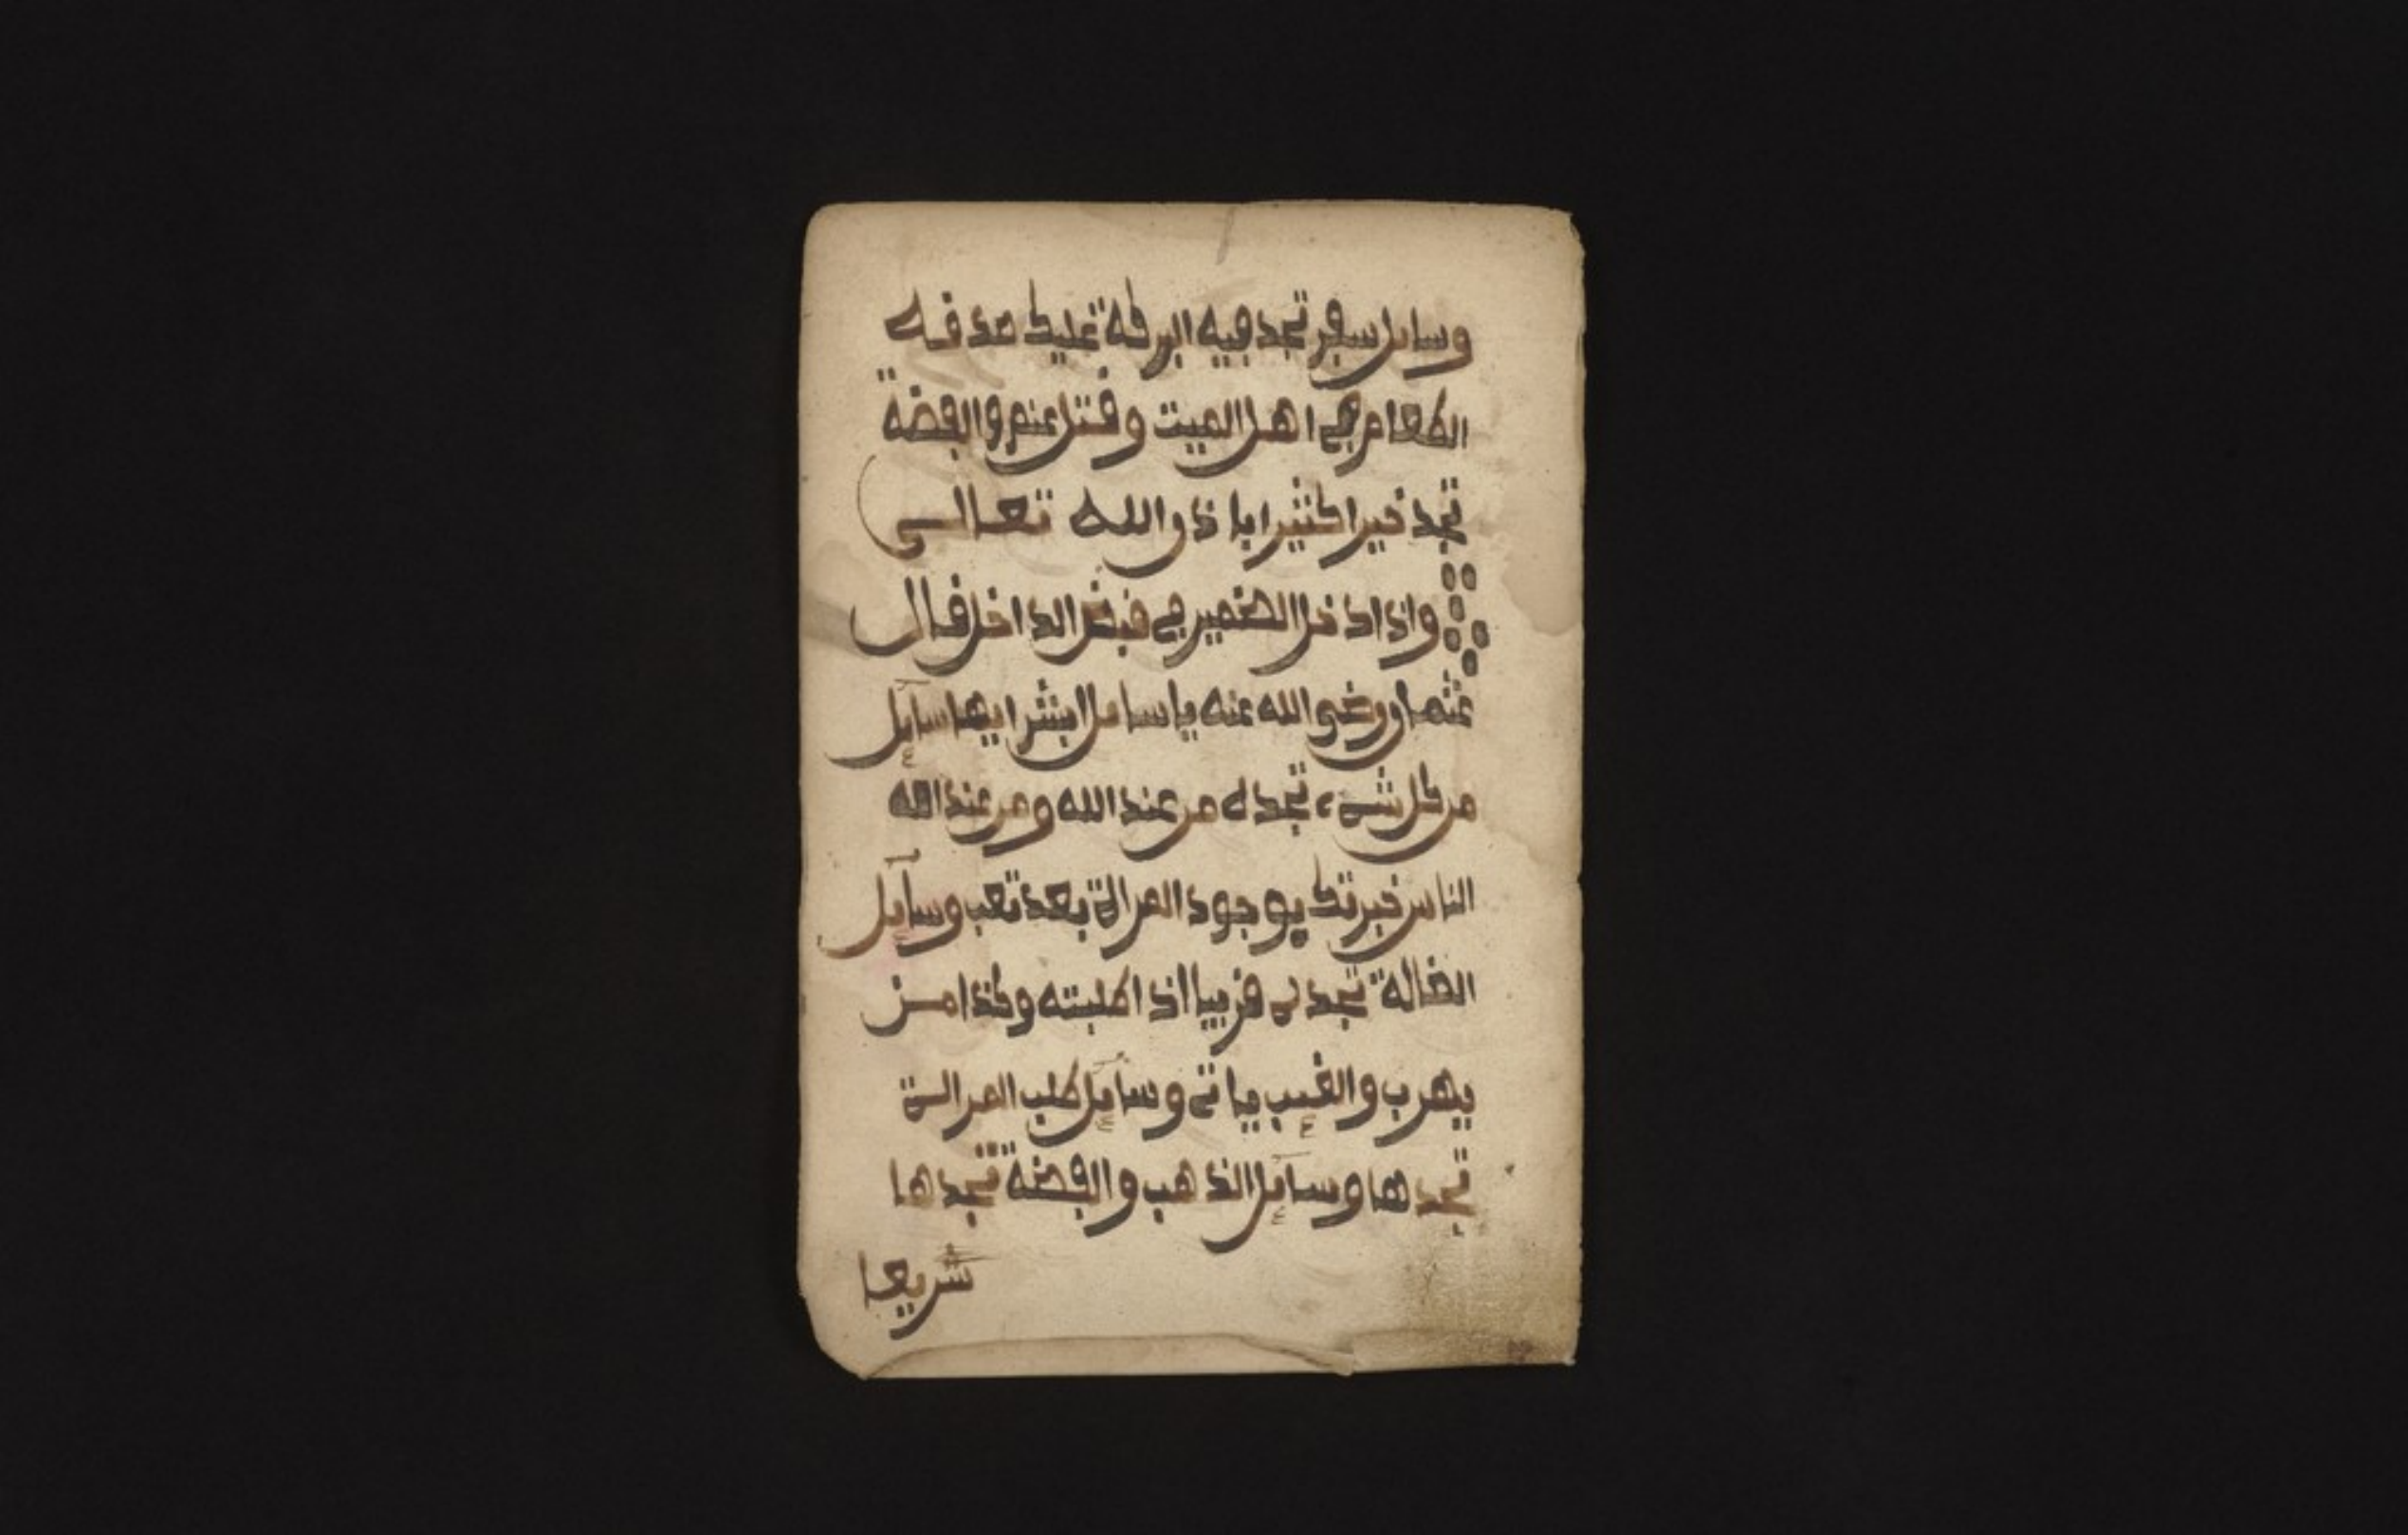 وسايل سفر تجد فيه البركة عليك صدقه
الطعام في اهل الميت وقتل غنم والفضة
تجد خيرا كثيرا باذن الله تعالى
واذا دخل الضمير في قبض الداخل قال
عثمان رضي الله عنه يا سايل ابشر ايها سايل
من كل شيء تجد له من عند الله ومن عند الله
الناس خبرتك بوجود المرالة بعد تعب وسايل
الضالة تجد له قريبا اذا طلبته وكذا من
يهرب والغيب ياتي وسايل طلب المرالة
تجدها وسايل الذهب والفضة تجدها
شريعا